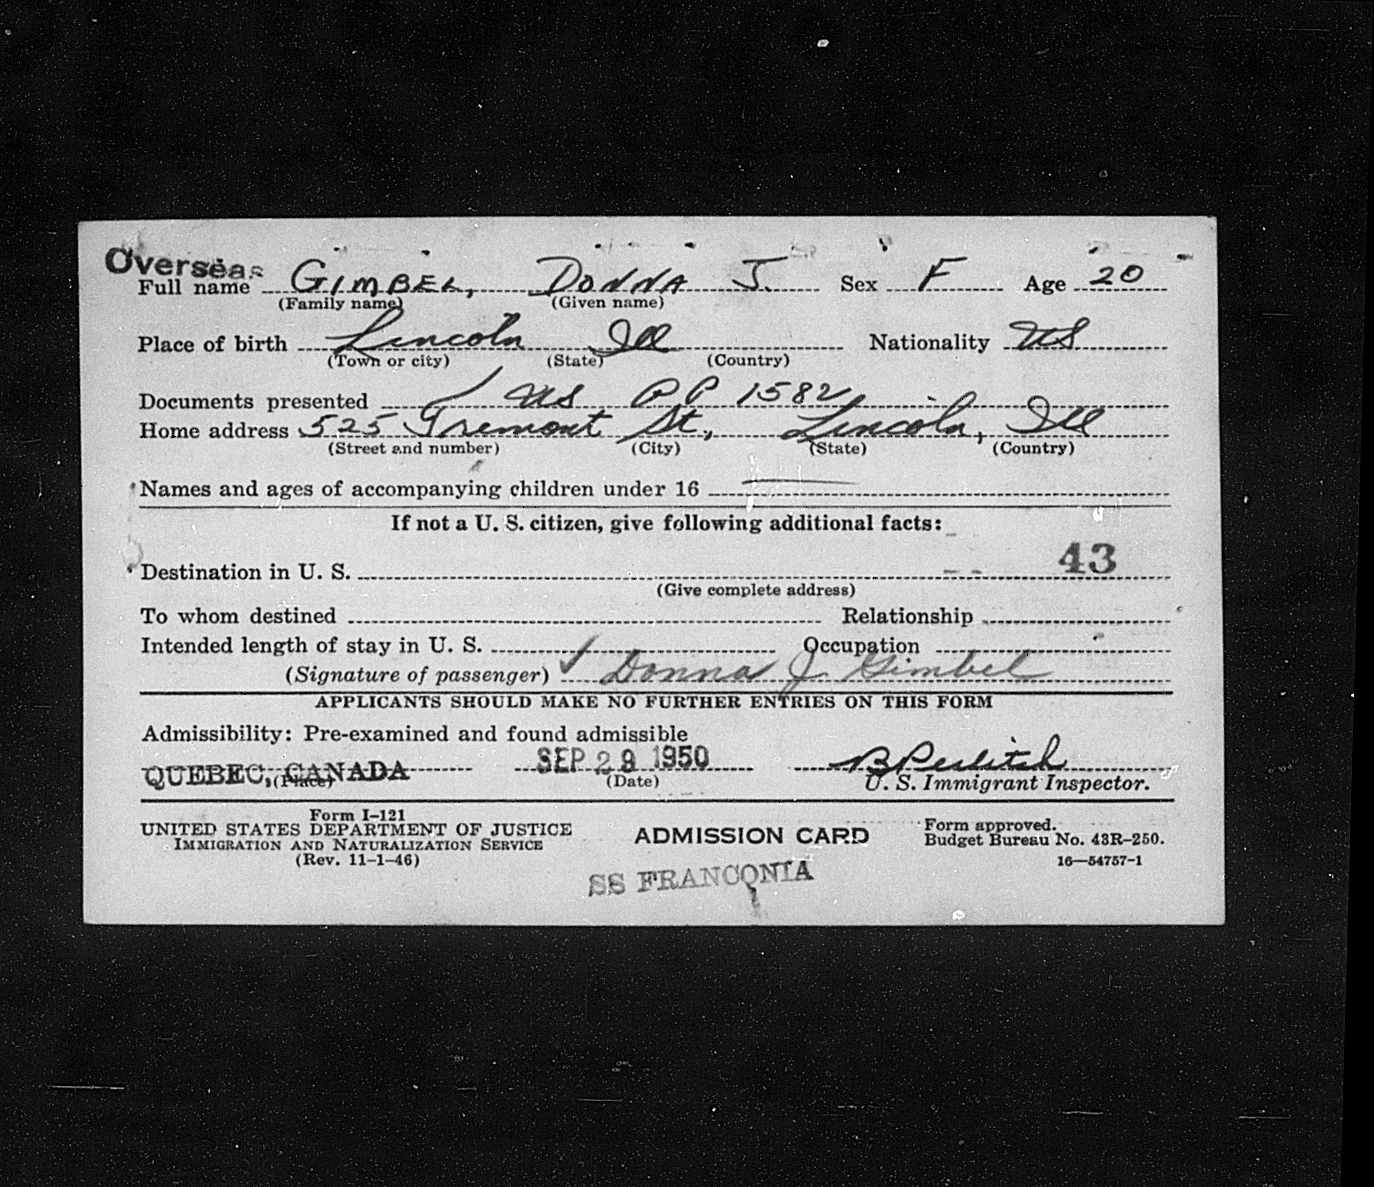 Overseas
Full name GIMBEL, DONNA J. Sex F Age 20
(Family name) (Given name)
Place of birth Lincoln Ill Nationality US
(Town or city) (State) (Country)
Documents presented US PP 1582
Home address 525 Tremont St, Lincoln, Ill
(Street and number) (City) (State) (Country)
Names and ages of accompanying children under 16
If not a U. S. citizen, give following additional facts:
43
Destination in U. S.
(Give complete address)
To whom destined Relationship
Intended length of stay in U. S. Occupation
(Signature of passenger) Donna J. Gimbel
APPLICANTS SHOULD MAKE NO FURTHER ENTRIES ON THIS FORM
Admissibility: Pre-examined and found admissible
QUEBEC, CANADA SEP 29 1950 B Perlitch
(Place) (Date) U. S. Immigrant Inspector.
Form I-121
UNITED STATES DEPARTMENT OF JUSTICE
IMMIGRATION AND NATURALIZATION SERVICE
(Rev. 11-1-46)
ADMISSION CARD
Form approved.
Budget Bureau No. 43R-250.
16—54757-1
SS FRANCONIA